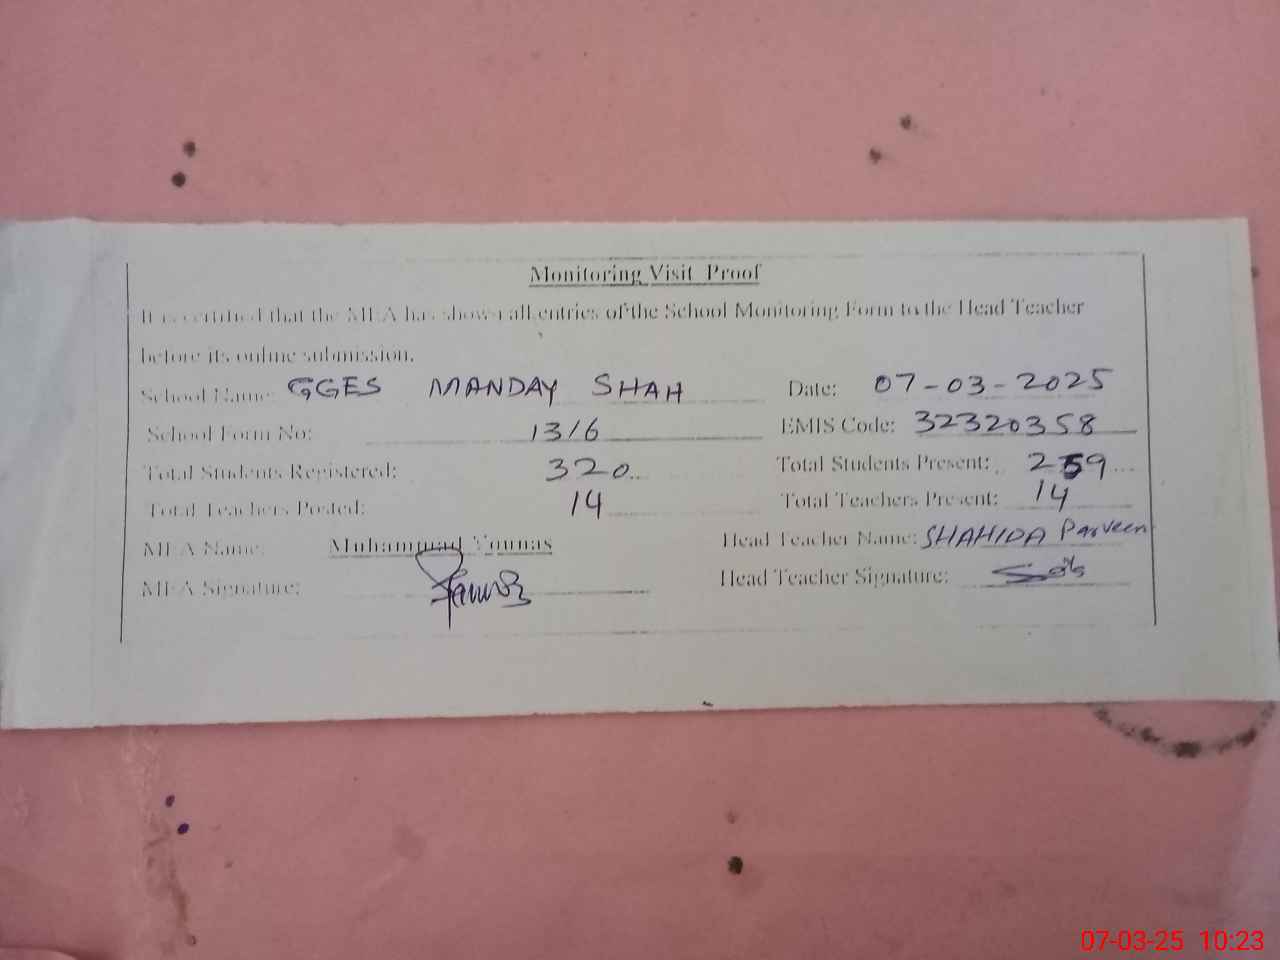 Monitoring Visit Proof
It is certified that the MEA has shown all entries of the School Monitoring Form to the Head Teacher
before its online submission.
School Name: GGES MANDAY SHAH Date: 07-03-2025
School Form No: 13/6 EMIS Code: 32320358
Total Students Registered: 320 Total Students Present: 259
Total Teachers Posted: 14 Total Teachers Present: 14
MEA Name: Muhammad Younas Head Teacher Name: SHAHIDA Parveen
MEA Signature: Head Teacher Signature:
07-03-25 10:23